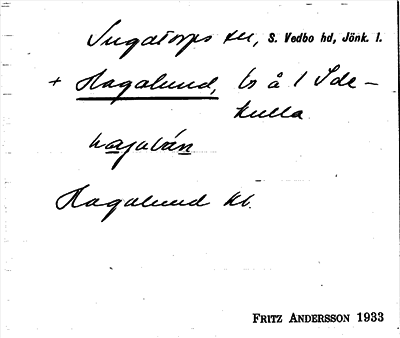 Ingatorps sn, S. Vedbo hd, Jönk. l.
+ Hagalund, ts å 1 Ide-
kulla
hagalún
Hagalund kb.
FRITZ ANDERSSON 1933